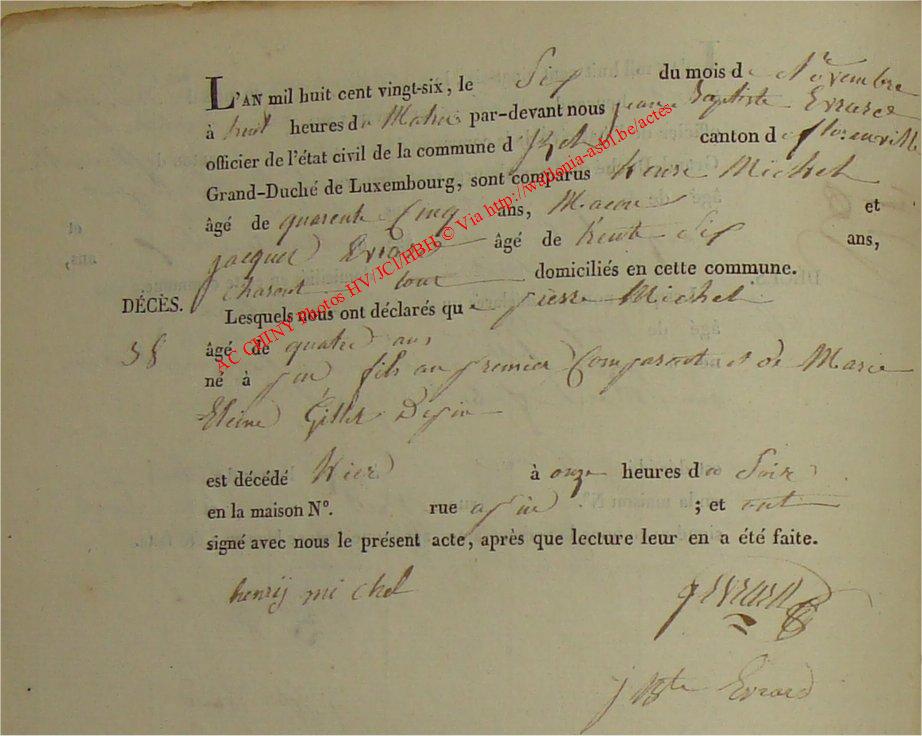 L'AN mil huit cent vingt-six, le Six du mois de Novembre
à huit heures du Matin par-devant nous jean Baptiste Evrard
officier de l'état civil de la commune d'Izel canton de florenville
Grand-Duché de Luxembourg, sont comparus Henri Michel
âgé de quarente Cinq ans, Macon et
jacques Evrard âgé de trente Six ans,
Charon tous domiciliés en cette commune.
DÉCÈS. Lesquels nous ont déclarés que pierre Michel
38 âgé de quatre ans
né à pin fils au premier Comparant et de Marie
Gillet Depin
est décédé Hier à onze heures du Soir
en la maison N°. rue a pin ; et ont
signé avec nous le présent acte, après que lecture leur en a été faite.
henrij michel
J Evrard
j Bte Evrard
AC CHINY Photos HV/JCI/HBH © Via http://wallonia-asbl.be/actes